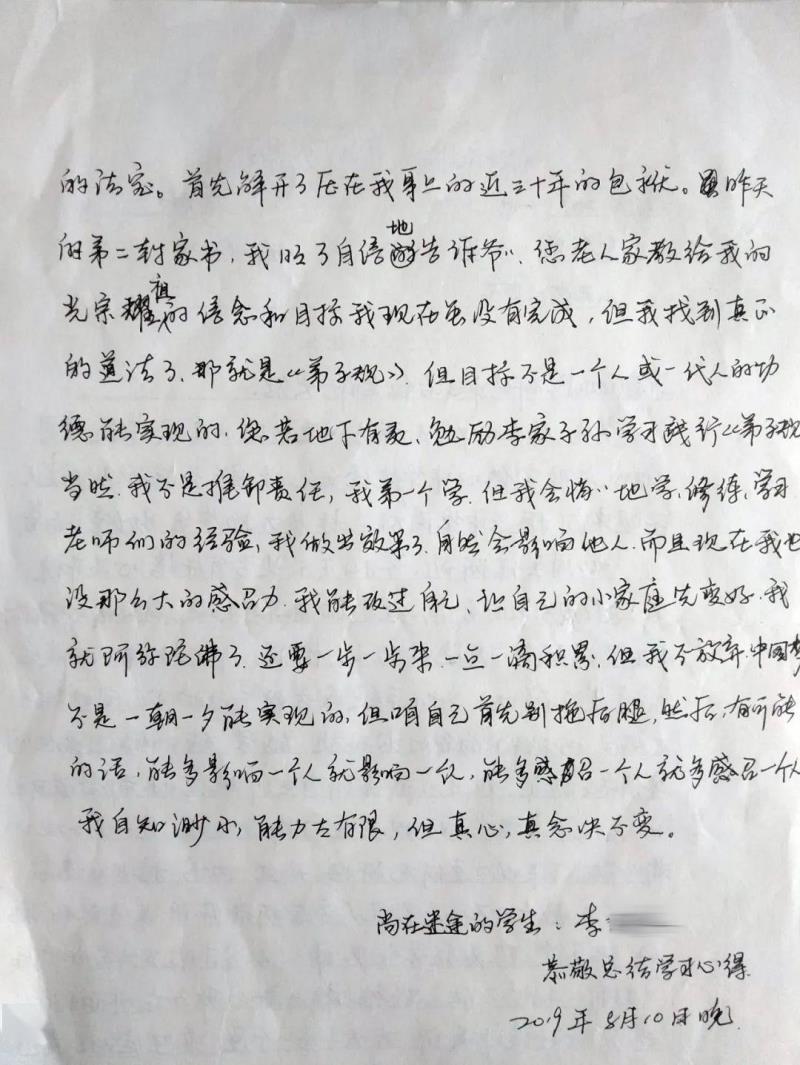 的法宝。首先解开了压在我身上的近三十年的包袱。昨天
的第二封家书,我旺了自信地告诉爷〃、您老人家教给我的
光宗耀祖的信念和目标我现在虽没有完成,但我找到真正
的道法了、那就是《弟子规》. 但目标不是一个人或一代人的功
德能实现的,您若地下有灵、勉励李家子孙学习践行《弟子规
当然.我不是推卸责任,我第一个学.但我会悄〃地学、修练、学习
老师们的经验,我做出效果了.自然会影响他人.而且现在我也
没那么大的感召力.我能改过自己、让自己的小家庭先变好.我
就阿弥陀佛了.还要一步一步来.一点一滴积累.但我不放弃.中国梦
不是一朝一夕能实现的,但咱自己首先别拖后腿,然后,有可能
的话,能多影响一个人就影响一个,能多感召一个人就多感召一个人
我自知渺小,能力太有限,但真心,真念决不变。
尚在迷途的学生:李
恭敬总结学习心得
2019年8月10日晚.